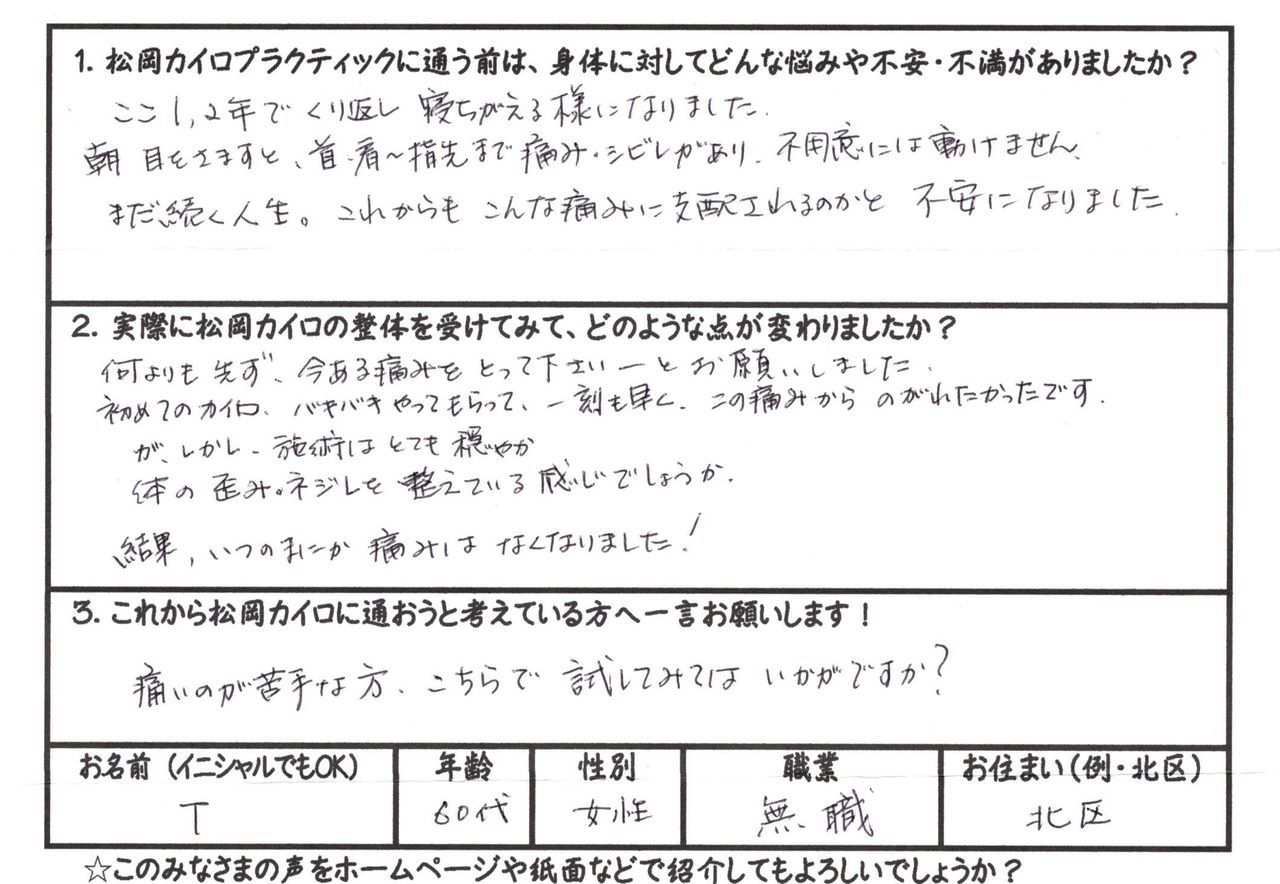 1. 松岡カイロプラクティックに通う前は、身体に対してどんな悩みや不安・不満がありましたか？
ここ1,2年でくり返し 寝ちがえる様になりました.
朝 目をさますと、首・肩～指先まで痛み・シビレがあり. 不用意には動けません.
まだ続く人生。これからも こんな痛みに支配されるのかと 不安になりました.
2. 実際に松岡カイロの整体を受けてみて、どのような点が変わりましたか？
何よりも 先ず、今ある痛みを とって下さいーと お願いしました.
初めてのカイロ. バキバキやってもらって、一刻も早く、この痛みから のがれたかったです.
が、しかし、施術はとても 穏やか
体の 歪み。ネジレを 整えている 感じでしょうか.
結果, いつのまにか 痛みは なくなりました!
3. これから松岡カイロに通おうと考えている方へ一言お願いします！
痛いのが苦手な方、こちらで 試してみては いかがですか?
お名前（イニシャルでもOK） 年齢 性別 職業 お住まい（例・北区）
T 60代 女性 無職 北区
☆このみなさまの声をホームページや紙面などで紹介してもよろしいでしょうか？